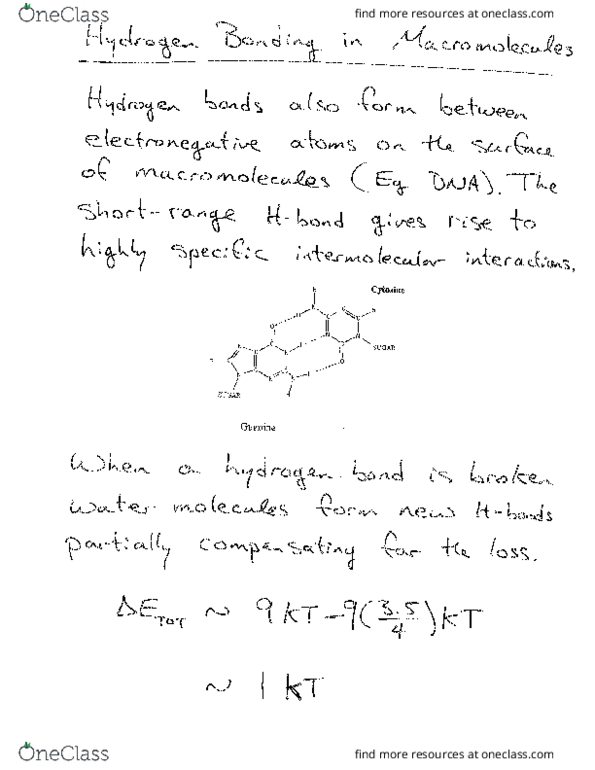 OneClass
find more resources at oneclass.com
Hydrogen Bonding in Macromolecules
Hydrogen bonds also form between
electronegative atoms on the surface
of macromolecules (Eg DNA). The
short-range H-bond gives rise to
highly specific intermolecular interactions.
Cytosine
SUGAR
SUGAR
Guanine
When a hydrogen bond is broken
water molecules form new H-bonds
partially compensating for the loss.
ΔE_TOT ~ 9 kT - 9(3.5/4) kT
~ 1 kT
OneClass
find more resources at oneclass.com